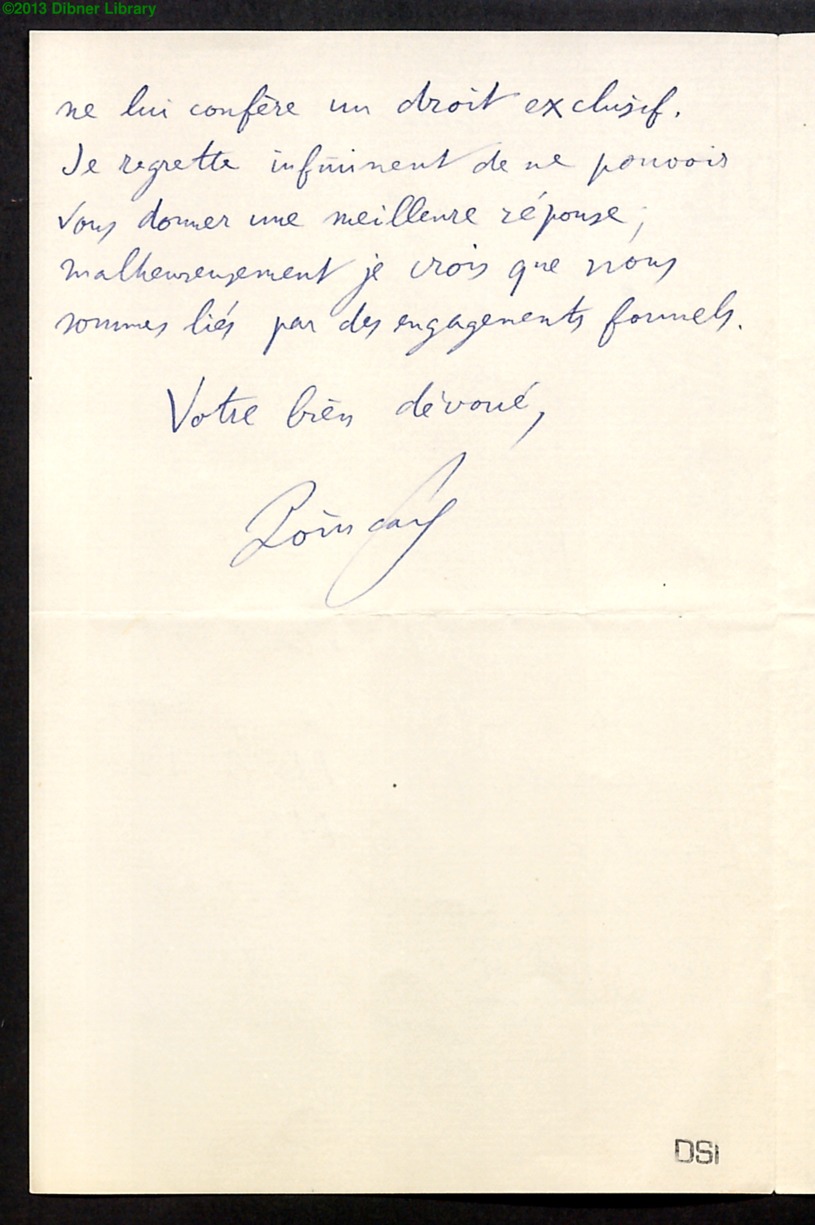 ©2013 Dibner Library
ne lui confère un droit exclusif.
Je regrette infiniment de ne pouvoir
vous donner une meilleure réponse;
malheureusement je crois que nous
sommes liés par des engagements formels.
Votre bien dévoué,
Poincaré
DSI